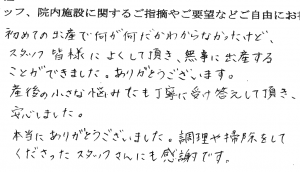 ッフ、院内施設に関するご指摘やご要望などご自由にお
初めての出産で何が何だかわからなかったけど、
スタッフ皆様によくして頂き、無事に出産する
ことができました。ありがとうございます。
産後の小さな悩みたも丁寧に受け答えして頂き、
安心しました。
本当にありがとうございました。調理や掃除をして
くださったスタッフさんにも感謝です。